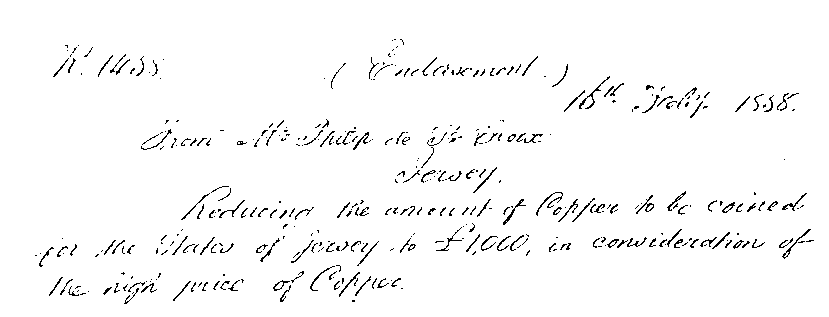 No. 1458. (Endorsement.)
16th Feby. 1858.
From Mr. Philip de Ste Croix
Jersey.
Reducing the amount of Copper to be coined
for the States of Jersey to £1,000, in consideration of
the high price of Copper.